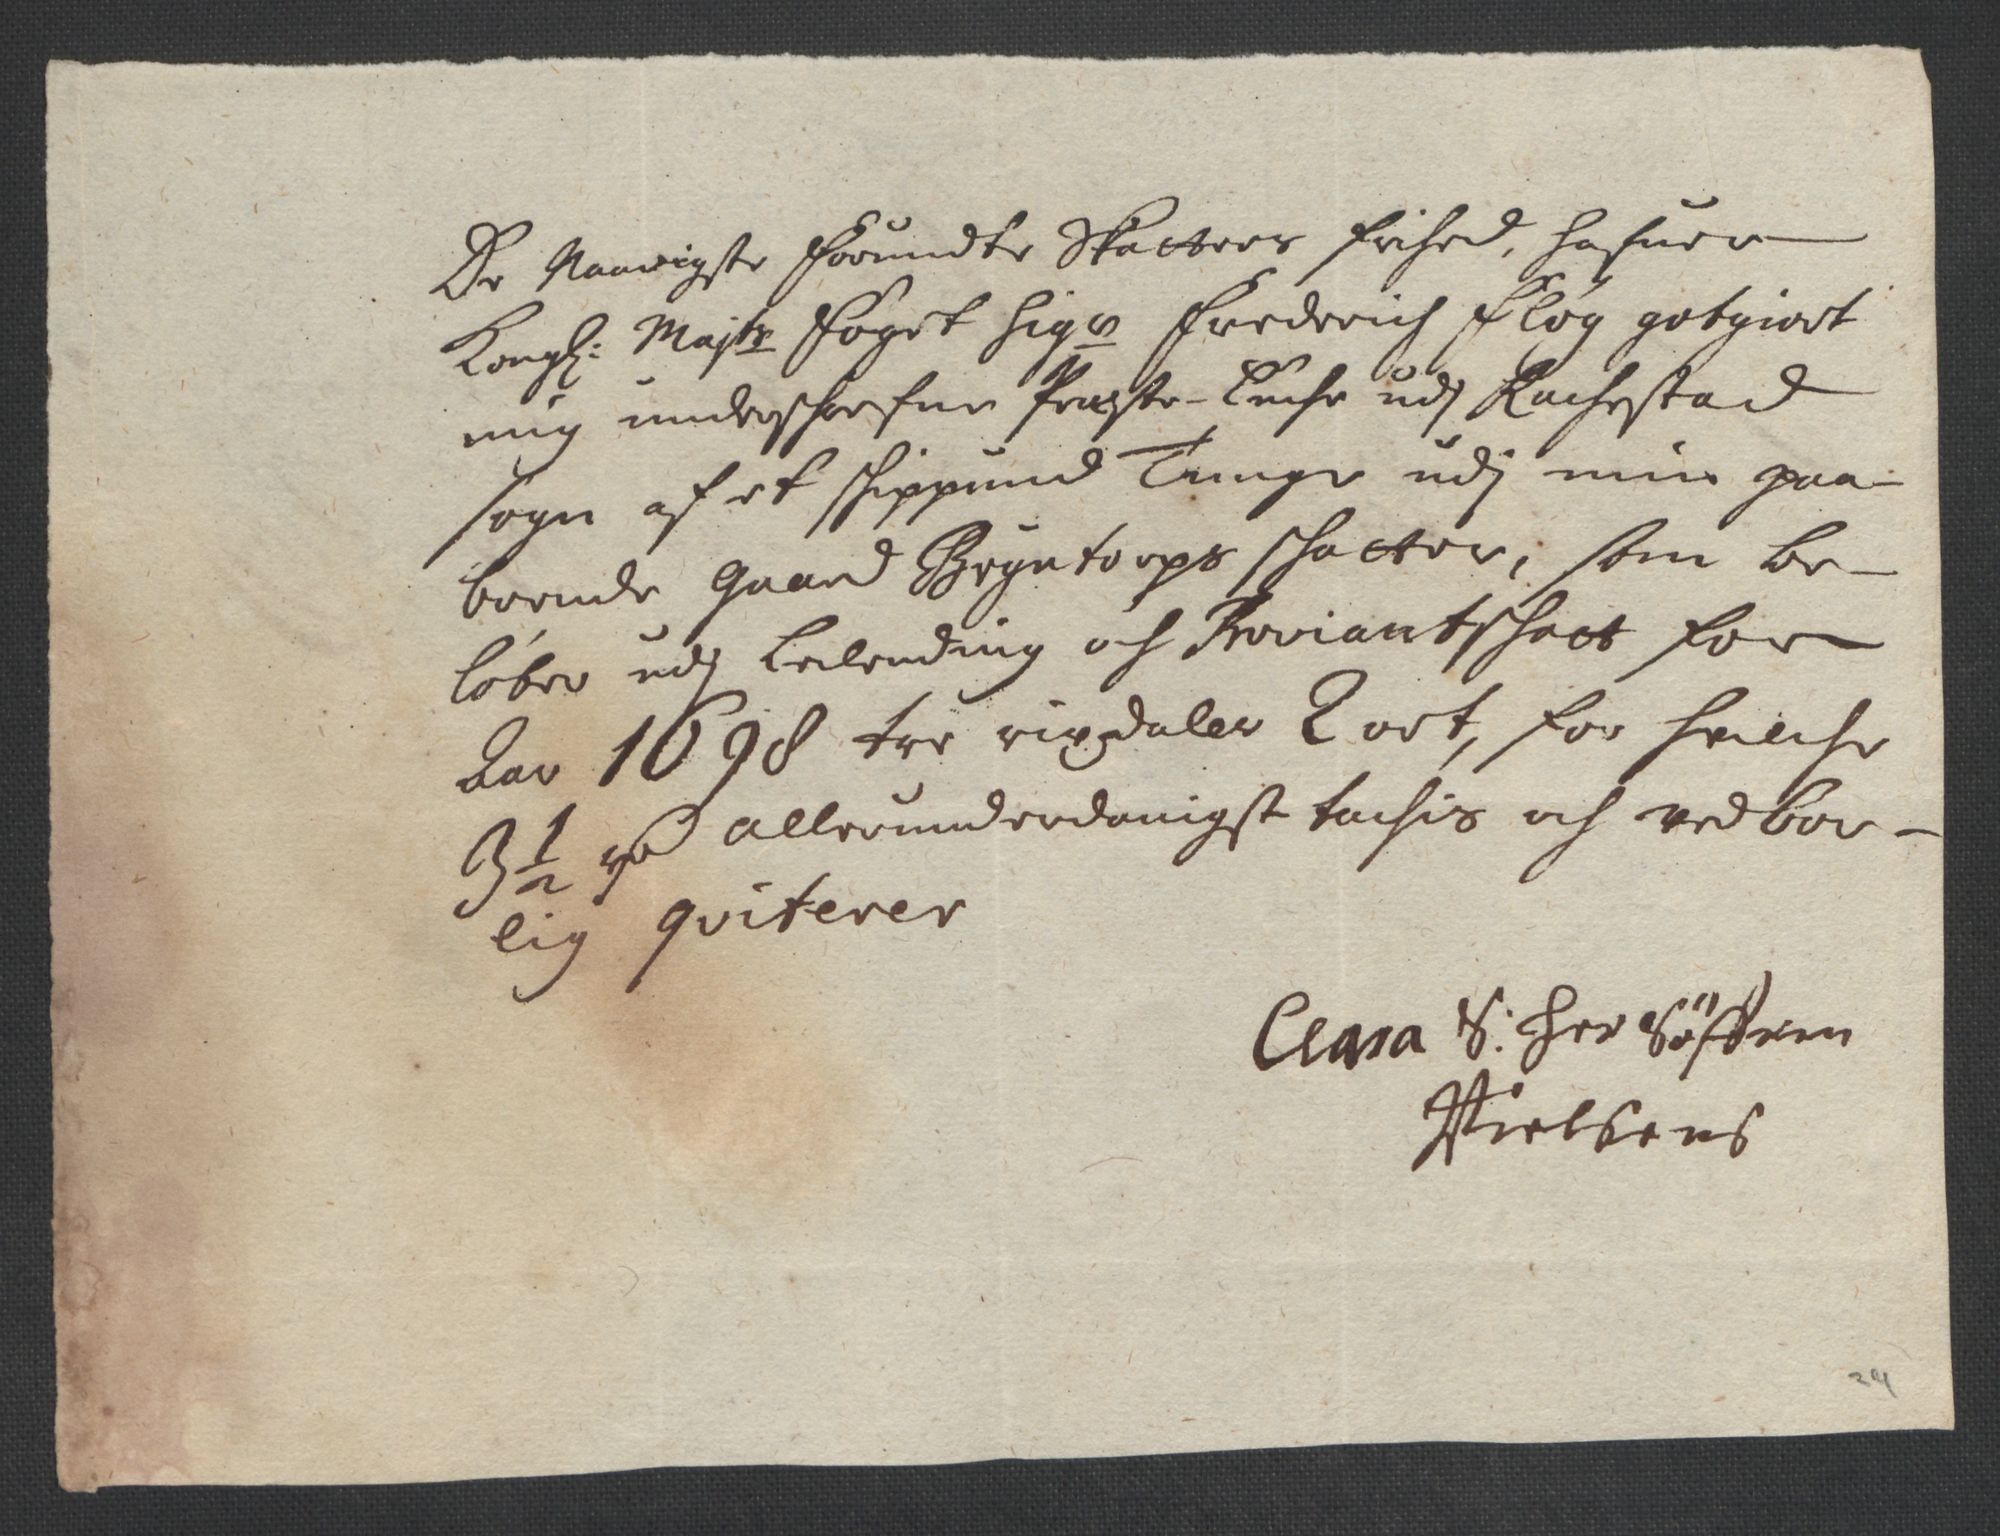 De Naadigste Forundte Skatters frihed, hafuer
Kongl: Majts Foget Sigr Frederich Fløg godgiort
mig underschrefne Præste-Enche udj Rachestad
sogn af et schippund Tunge udj min paa-
boende gaard Bøyntorps schatter, som be-
løber udj Leilending och Proviantschatt for
Aar 1698 tre rixdaler 2 ort, for hvilche
3½ rd allerunderdanigst tachis och vedbør-
lig qviterer
Clara S: Her Søffren
Nielsens
24